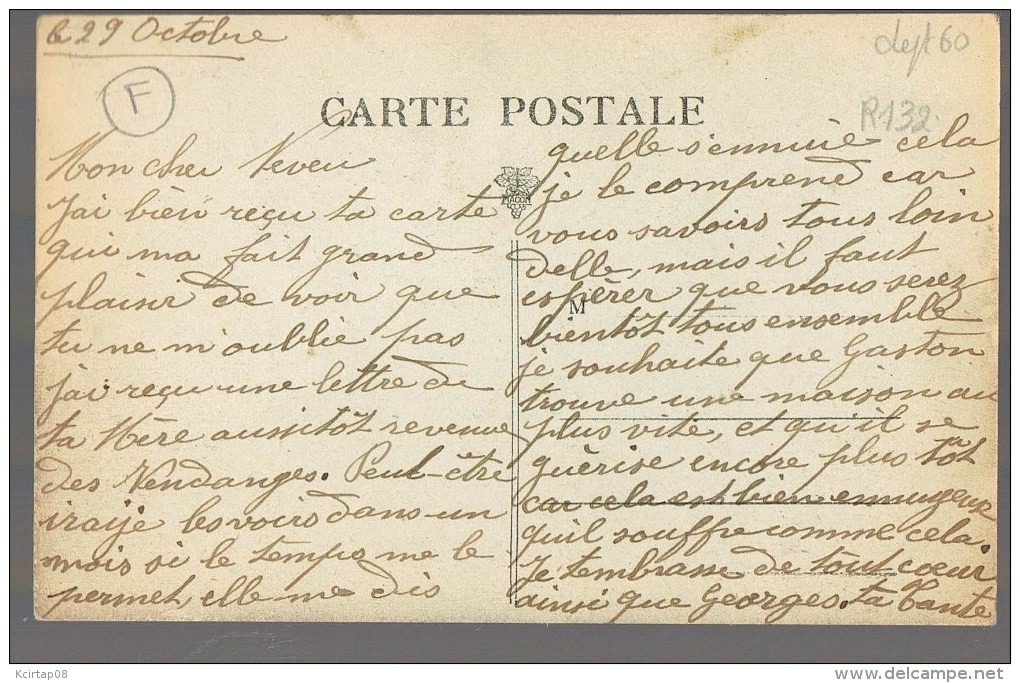 le 29 Octobre
dept 60
F
CARTE POSTALE
R132
Mon cher Neveu
J'ai bien reçu ta carte
qui ma fait grand
plaisir de voir que
tu ne m'oublie pas
j'ai reçu une lettre de
ta Mère aussitôt revenue
des Vendanges. Peut-être
iraije les voirs dans un
mois si le temps me le
permet, elle me dis
quelle s'ennuie cela
je le comprend car
vous savoirs tous loin
delle, mais il faut
espèrer que vous serez
bientôt tous ensemble
je souhaite que Gaston
trouve une maison au
plus vite, et qu'il se
guèrise encore plus tôt
car cela est bien ennuyeux
quil souffre comme cela.
Je t'embrasse de tout cœur
ainsi que Georges. ta tante
MACON
M
Kcirtap08
delcampe.net